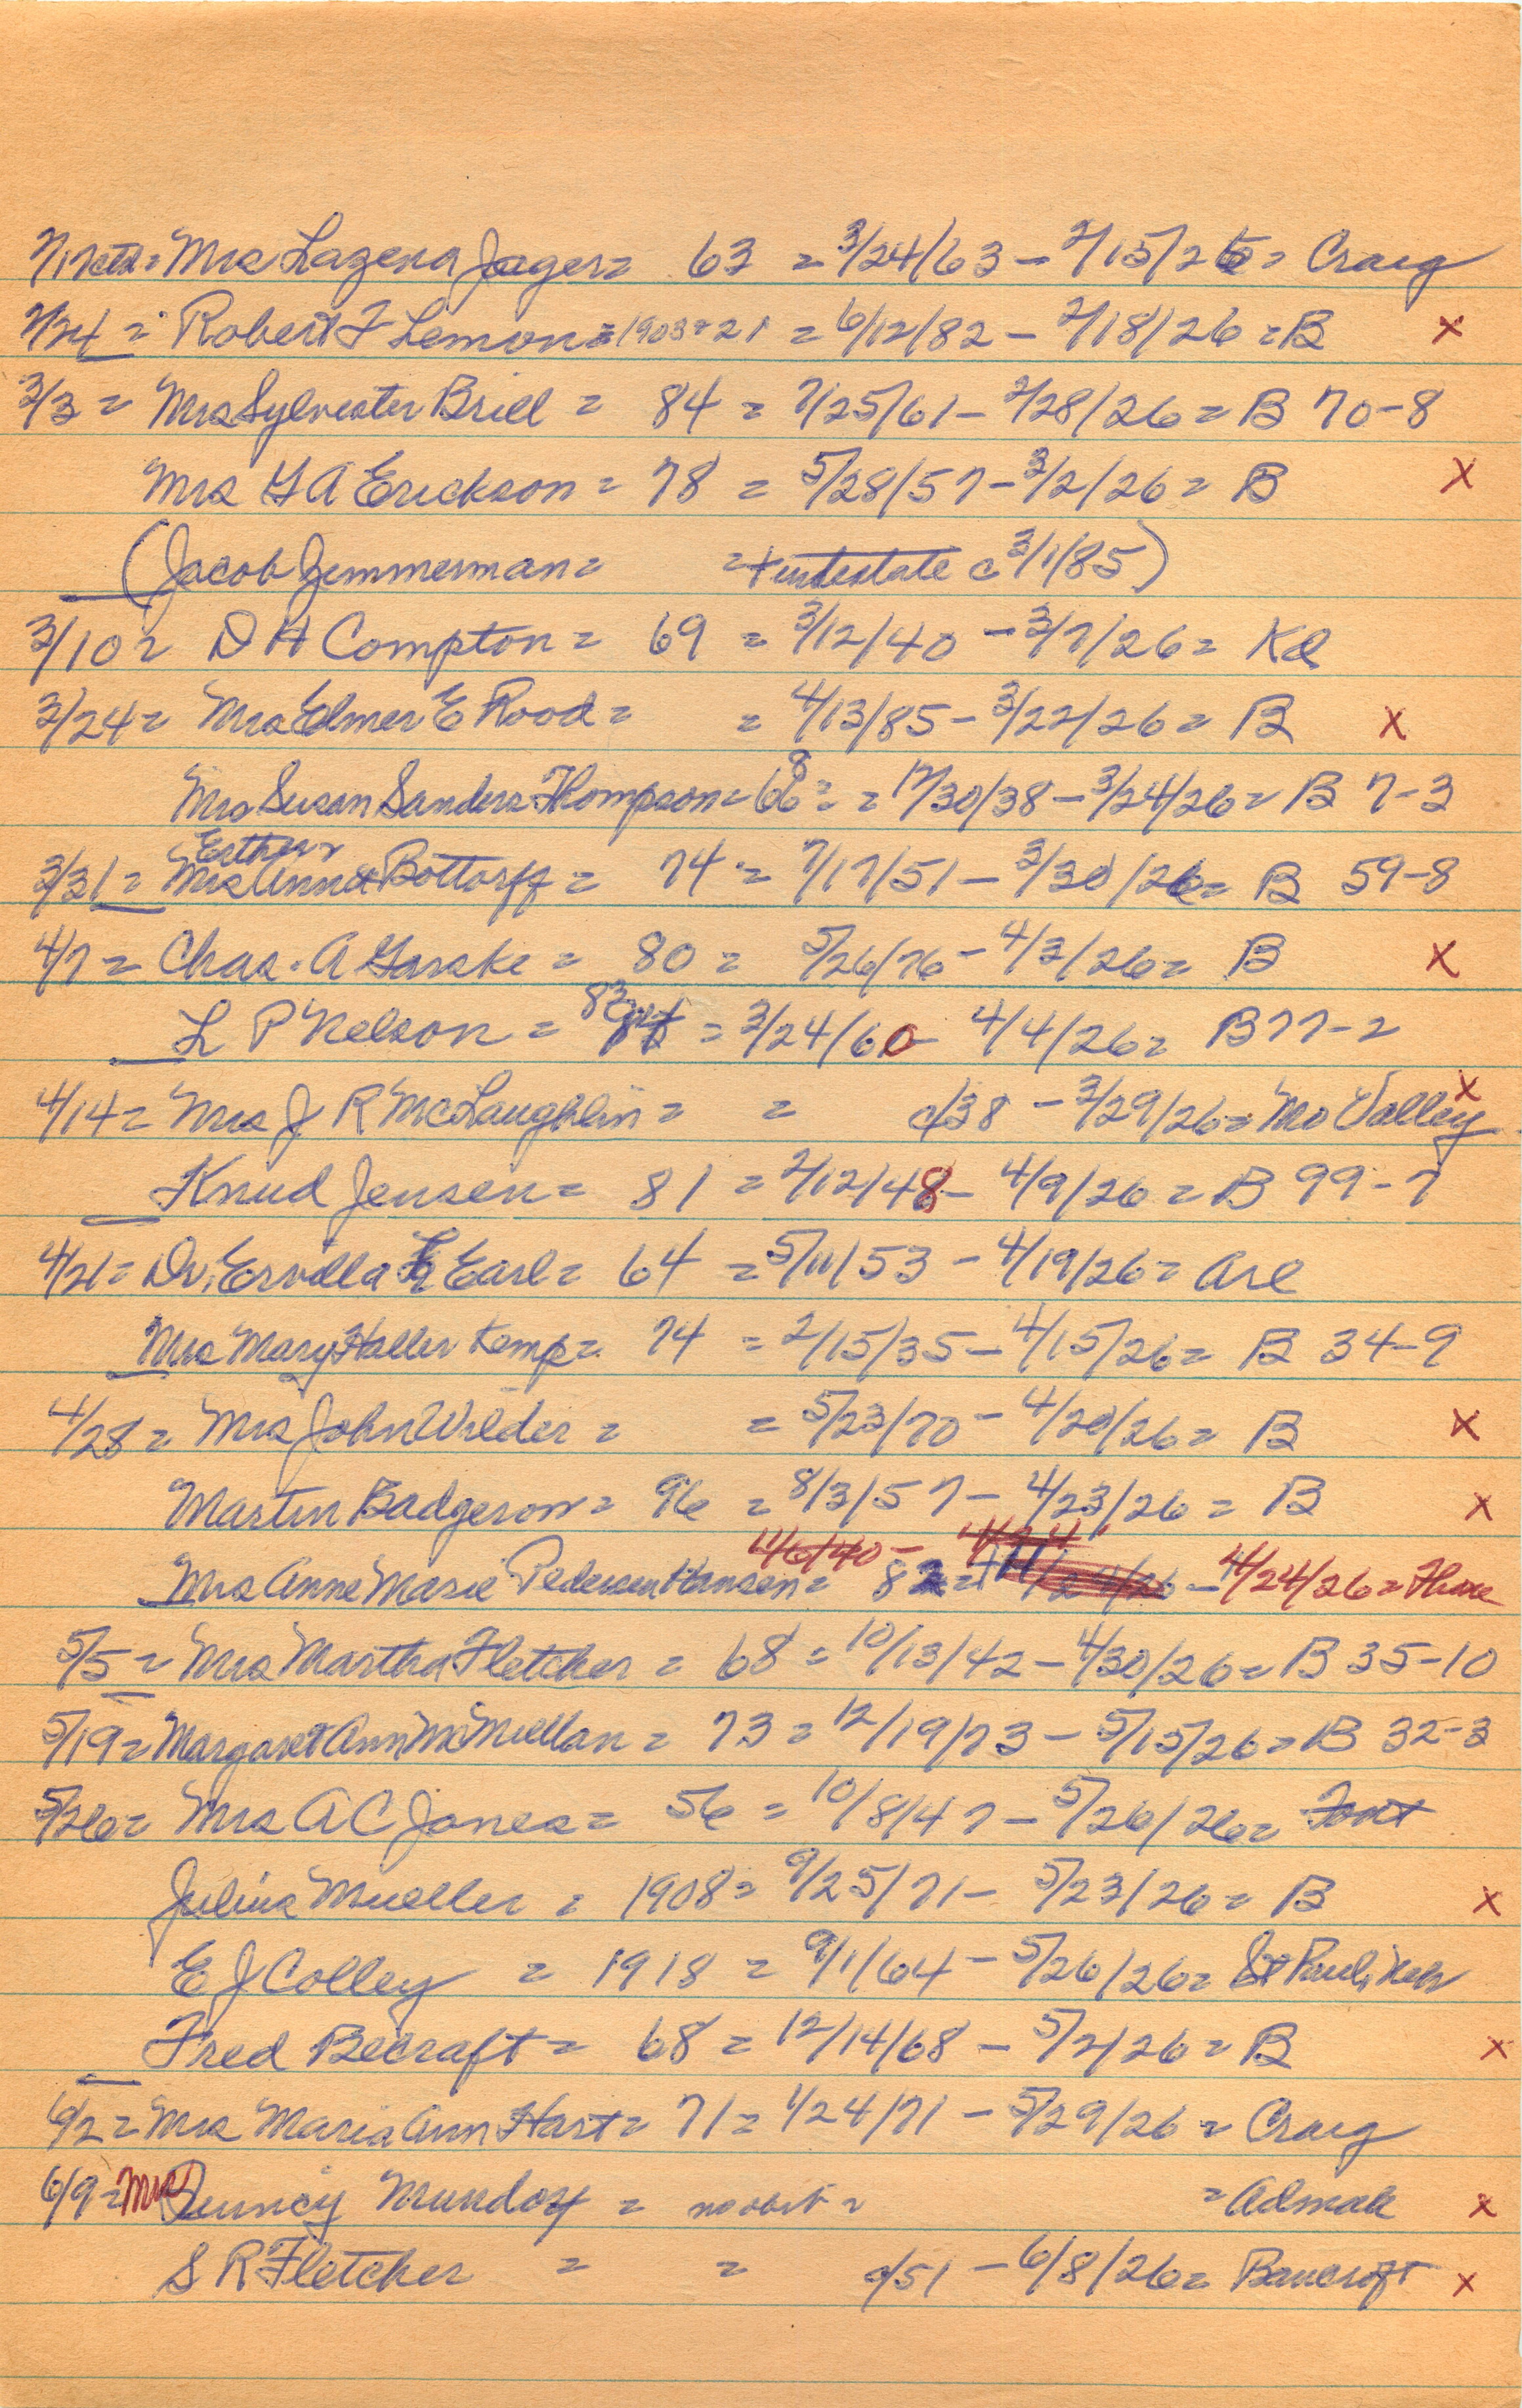 Mrs Lazena Jager = 63 = 3/24/63 - 2/15/26 = Craig
2/24 = Robert F Lemon = 1903 = 21 = 6/12/82 - 2/18/26 = B x
3/3 = Mrs Sylvester Brill = 84 = 7/25/61 - 2/28/26 = B 70-8
Mrs G A Erickson = 78 = 5/28/57 - 3/2/26 = B x
(Jacob Zimmerman = = + intestate c 3/1/85)
3/10 = D H Compton = 69 = 3/12/40 - 3/7/26 = Kd
3/24 = Mrs Elmer E Rood = = 4/13/85 - 3/22/26 = B x
Mrs Susan Sanders Thompson = 68 = = 12/30/38 - 3/24/26 = B 7-3
Esther
3/31 = Mrs Anna Bottorff = 74 = 7/17/51 - 3/30/26 = B 59-8
4/7 = Chas. A Garske = 80 = 5/26/76 - 4/3/26 = B x
L P Nelson = 83 = 3/24/60 - 4/4/26 = B 77-2
4/14 = Mrs J R McLaughlin = = c/38 - 3/29/26 = Mo Valley x
Knud Jensen = 81 = 2/12/48 - 4/9/26 = B 99-7
4/21 = Dr. Ervilla Earl = 64 = 5/11/53 - 4/19/26 = Arl
Mrs Mary Haller Kemp = 74 = 2/15/35 - 4/15/26 = B 34-9
4/28 = Mrs John Wilder = = 5/23/70 - 4/20/26 = B x
Martin Badgerow = 96 = 8/3/57 - 4/23/26 = B x
11/6/40 -
Mrs Anne Marie Pedersen Hansen = 82 = - 4/24/26 =
5/5 = Mrs Martha Fletcher = 68 = 10/13/42 - 4/30/26 = B 35-10
5/19 = Margaret Ann McMillan = 73 = 12/19/73 - 5/15/26 = B 32-3
5/26 = Mrs A C Jones = 56 = 10/8/47 - 5/26/26 = Font
Julius Mueller = 1908 = 9/25/71 - 5/23/26 = B x
E J Colley = 1918 = 9/1/64 - 5/26/26 = St Paul, Neb
Fred Becraft = 68 = 12/14/68 - 5/2/26 = B x
6/2 = Mrs Maria Ann Hart = 71 = 1/24/71 - 5/29/26 = Craig
6/9 = Mrs Quincy Mundorf = no obit = = Admah x
S R Fletcher = = c/51 - 6/8/26 = Bancroft x